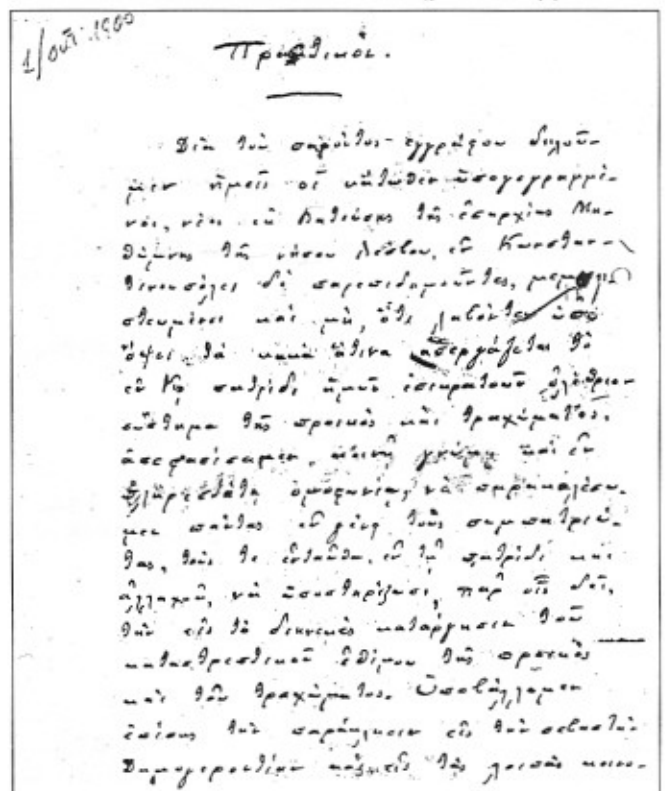 1/Οκτ. 1900
Πρακτικόν.
Διὰ τοῦ παρόντος ἐγγράφου δηλοῦ-
μεν ἡμεῖς οἱ κάτωθεν ὑπογεγραμμέ-
νοι, νέοι ἐκ τῆς ἐπαρχίας Μη-
θύμνης τῆς νήσου Λέσβου, ἐν Κωνσταν-
τινουπόλει δὲ παρεπιδημοῦντες,
καὶ μή, ὅτι λαβόντες ὑπ'
ὄψει τὰ κακὰ ἅτινα ἀπεργάζεται τὸ
ἐν τῇ πατρίδι ἡμῶν ἐπικρατοῦν ὀλέθριον
σύστημα τῆς προικὸς καὶ τραχώματος,
ἀπεφασίσαμεν, κοινῇ γνώμῃ καὶ ἐν
πληρεστάτῃ ὁμοφωνίᾳ, νὰ παρακαλέσω-
μεν πάντας ἐν γένει τοὺς συμπατριώ-
τας, τούς τε ἐνταῦθα, ἐν τῇ πατρίδι καὶ
ἀλλαχοῦ, νὰ ὑποστηρίξωσι, παρ' οἷς δεῖ,
τὴν εἰς τὸ διηνεκὲς κατάργησιν τοῦ
καταστρεπτικοῦ ἐθίμου τῆς προικὸς
καὶ τοῦ τραχώματος. Ὑποβάλλομεν
ἐπίσης τὴν παράκλησιν εἰς τὴν σεβαστὴν
Δημογεροντίαν τὰς λοιπὰς κοινο-